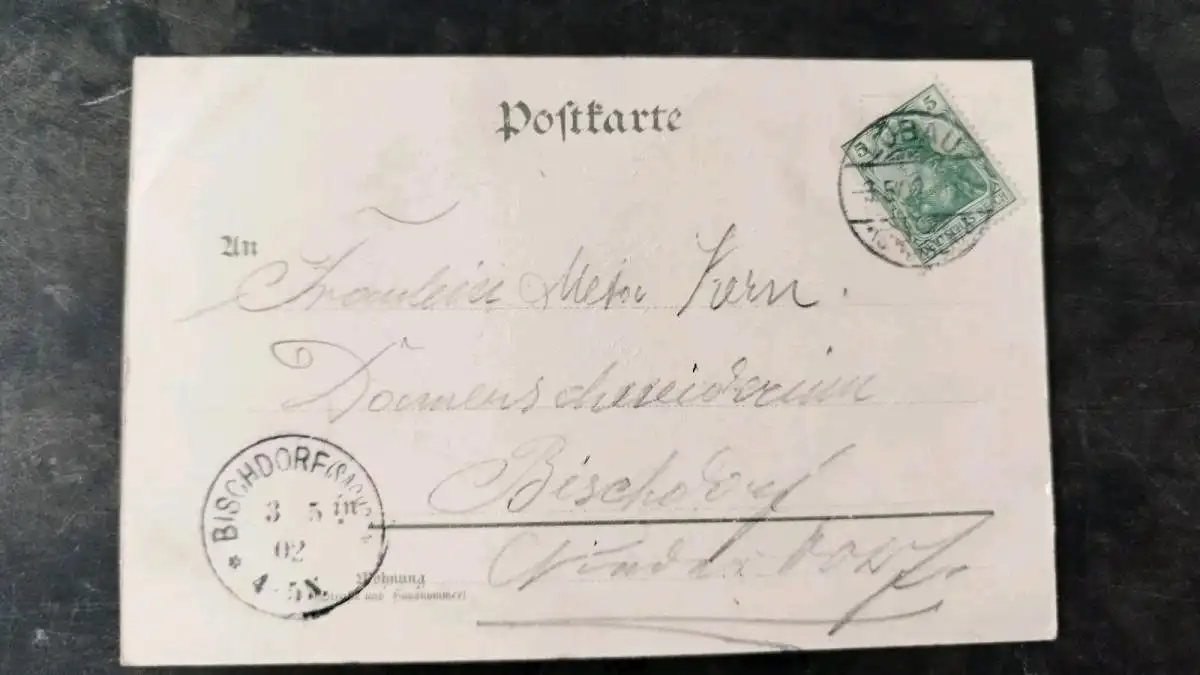 Postkarte
5
5
ZÖBAU
An
Fräulein Meta Kern.
Damenschneiderinn
Bischdorf
BISCHDORF (SACHS.)
3 5
02
4-5N
in
Wohnung
(Straße und Hausnummer)